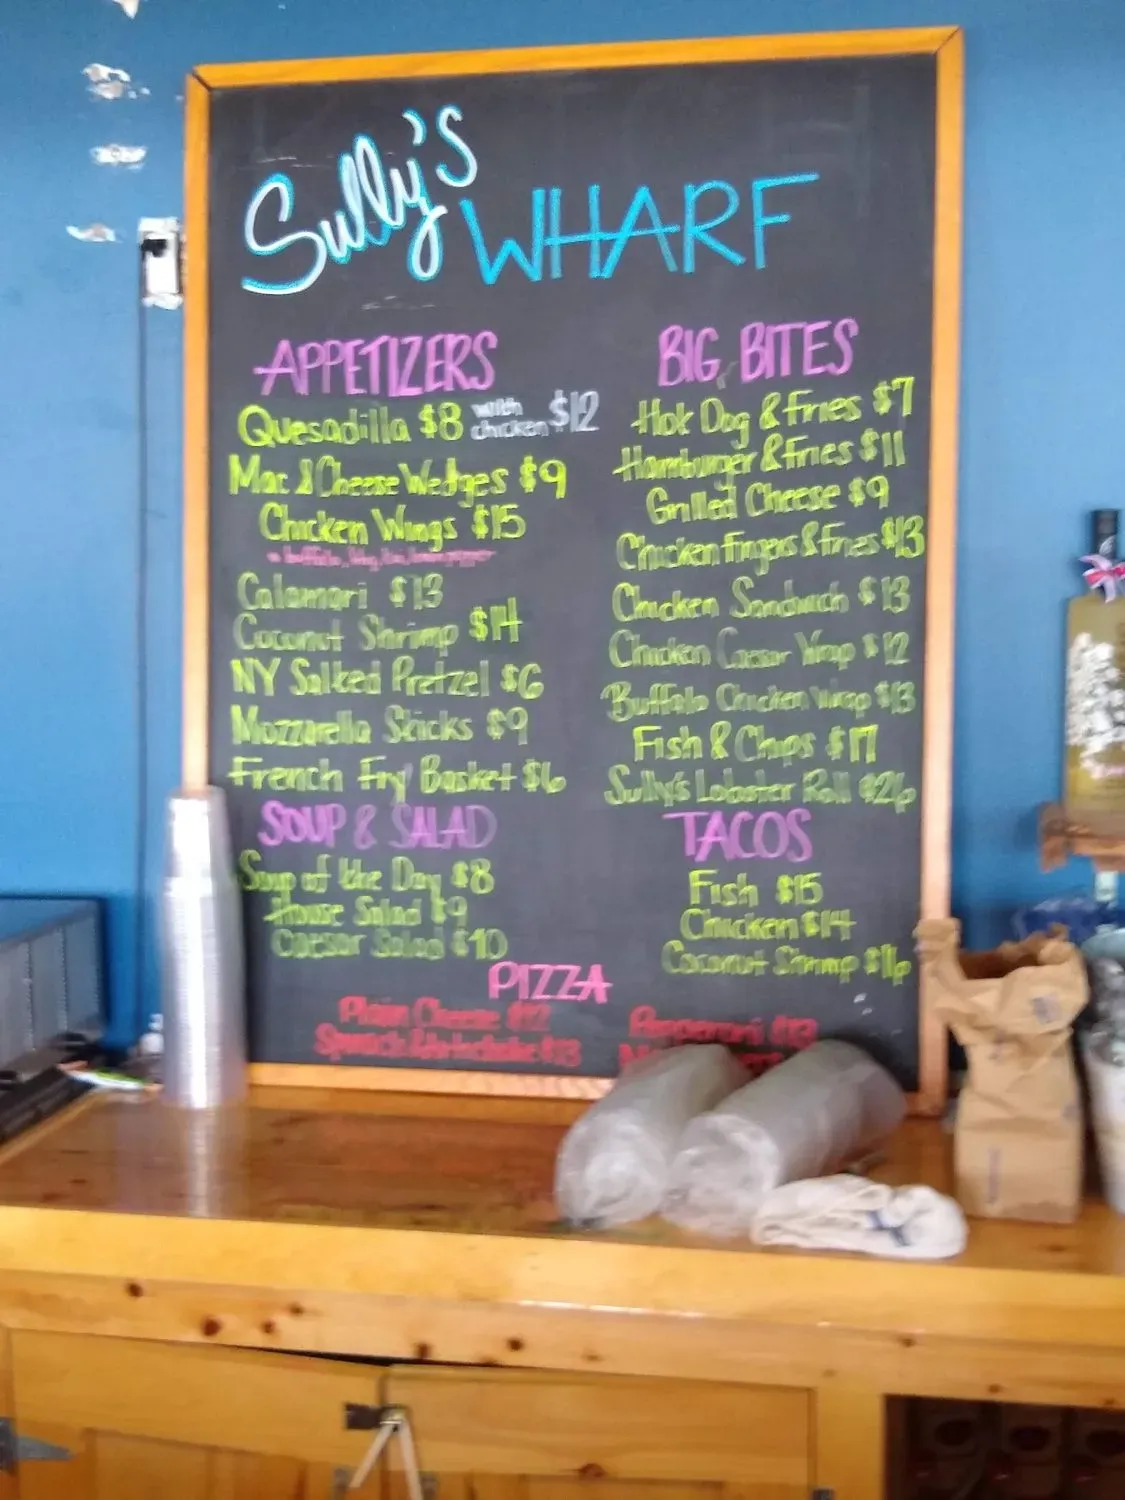 Sully's
WHARF
APPETIZERS
Quesadilla $8 with chicken $12
Mac & Cheese Wedges $9
Chicken Wings $15
Calamari $13
Coconut Shrimp $14
NY Salted Pretzel $6
Mozzarella Sticks $9
French Fry Basket $6
SOUP & SALAD
Soup of the Day $8
House Salad $9
Caesar Salad $10
BIG BITES
Hot Dog & Fries $7
Hamburger & Fries $11
Grilled Cheese $9
Chicken Fingers & Fries $13
Chicken Sandwich $13
Chicken Caesar Wrap $12
Buffalo Chicken Wrap $13
Fish & Chips $17
Sully's Lobster Roll $26
TACOS
Fish $15
Chicken $14
Coconut Shrimp $16
PIZZA
Plain Cheese $12
Pepperoni $13